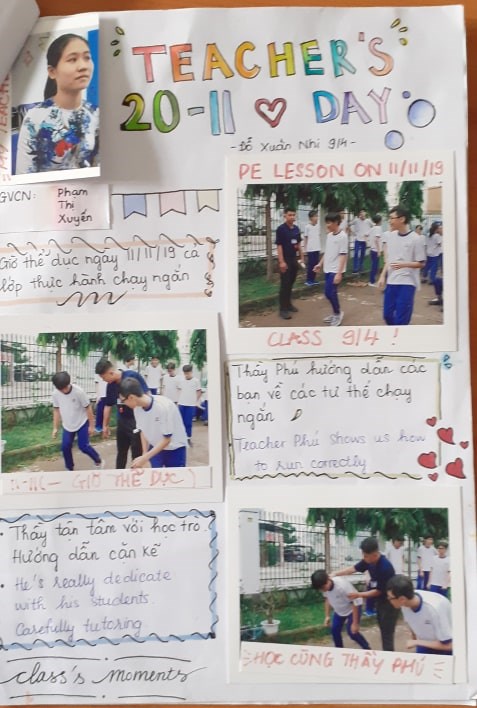 TEACHER'S
20-11 ♡ DAY
- Đỗ Xuân Nhi 9/4 -
MY TEACHER
GVCN: Phạm
Thị
Xuyến
PE LESSON ON 11/11/19
CLASS 9/4 !
Giờ thể dục ngày 11/11/19 cả
lớp thực hành chạy ngắn
Thầy Phú hướng dẫn các
bạn về các tư thế chạy
ngắn
Teacher Phú shows us how
to run correctly
GIỜ THỂ DỤC
• Thầy tận tâm với học trò.
Hướng dẫn cặn kẽ
• He's really dedicate
with his students
Carefully tutoring
HỌC CÙNG THẦY PHÚ
class's moments